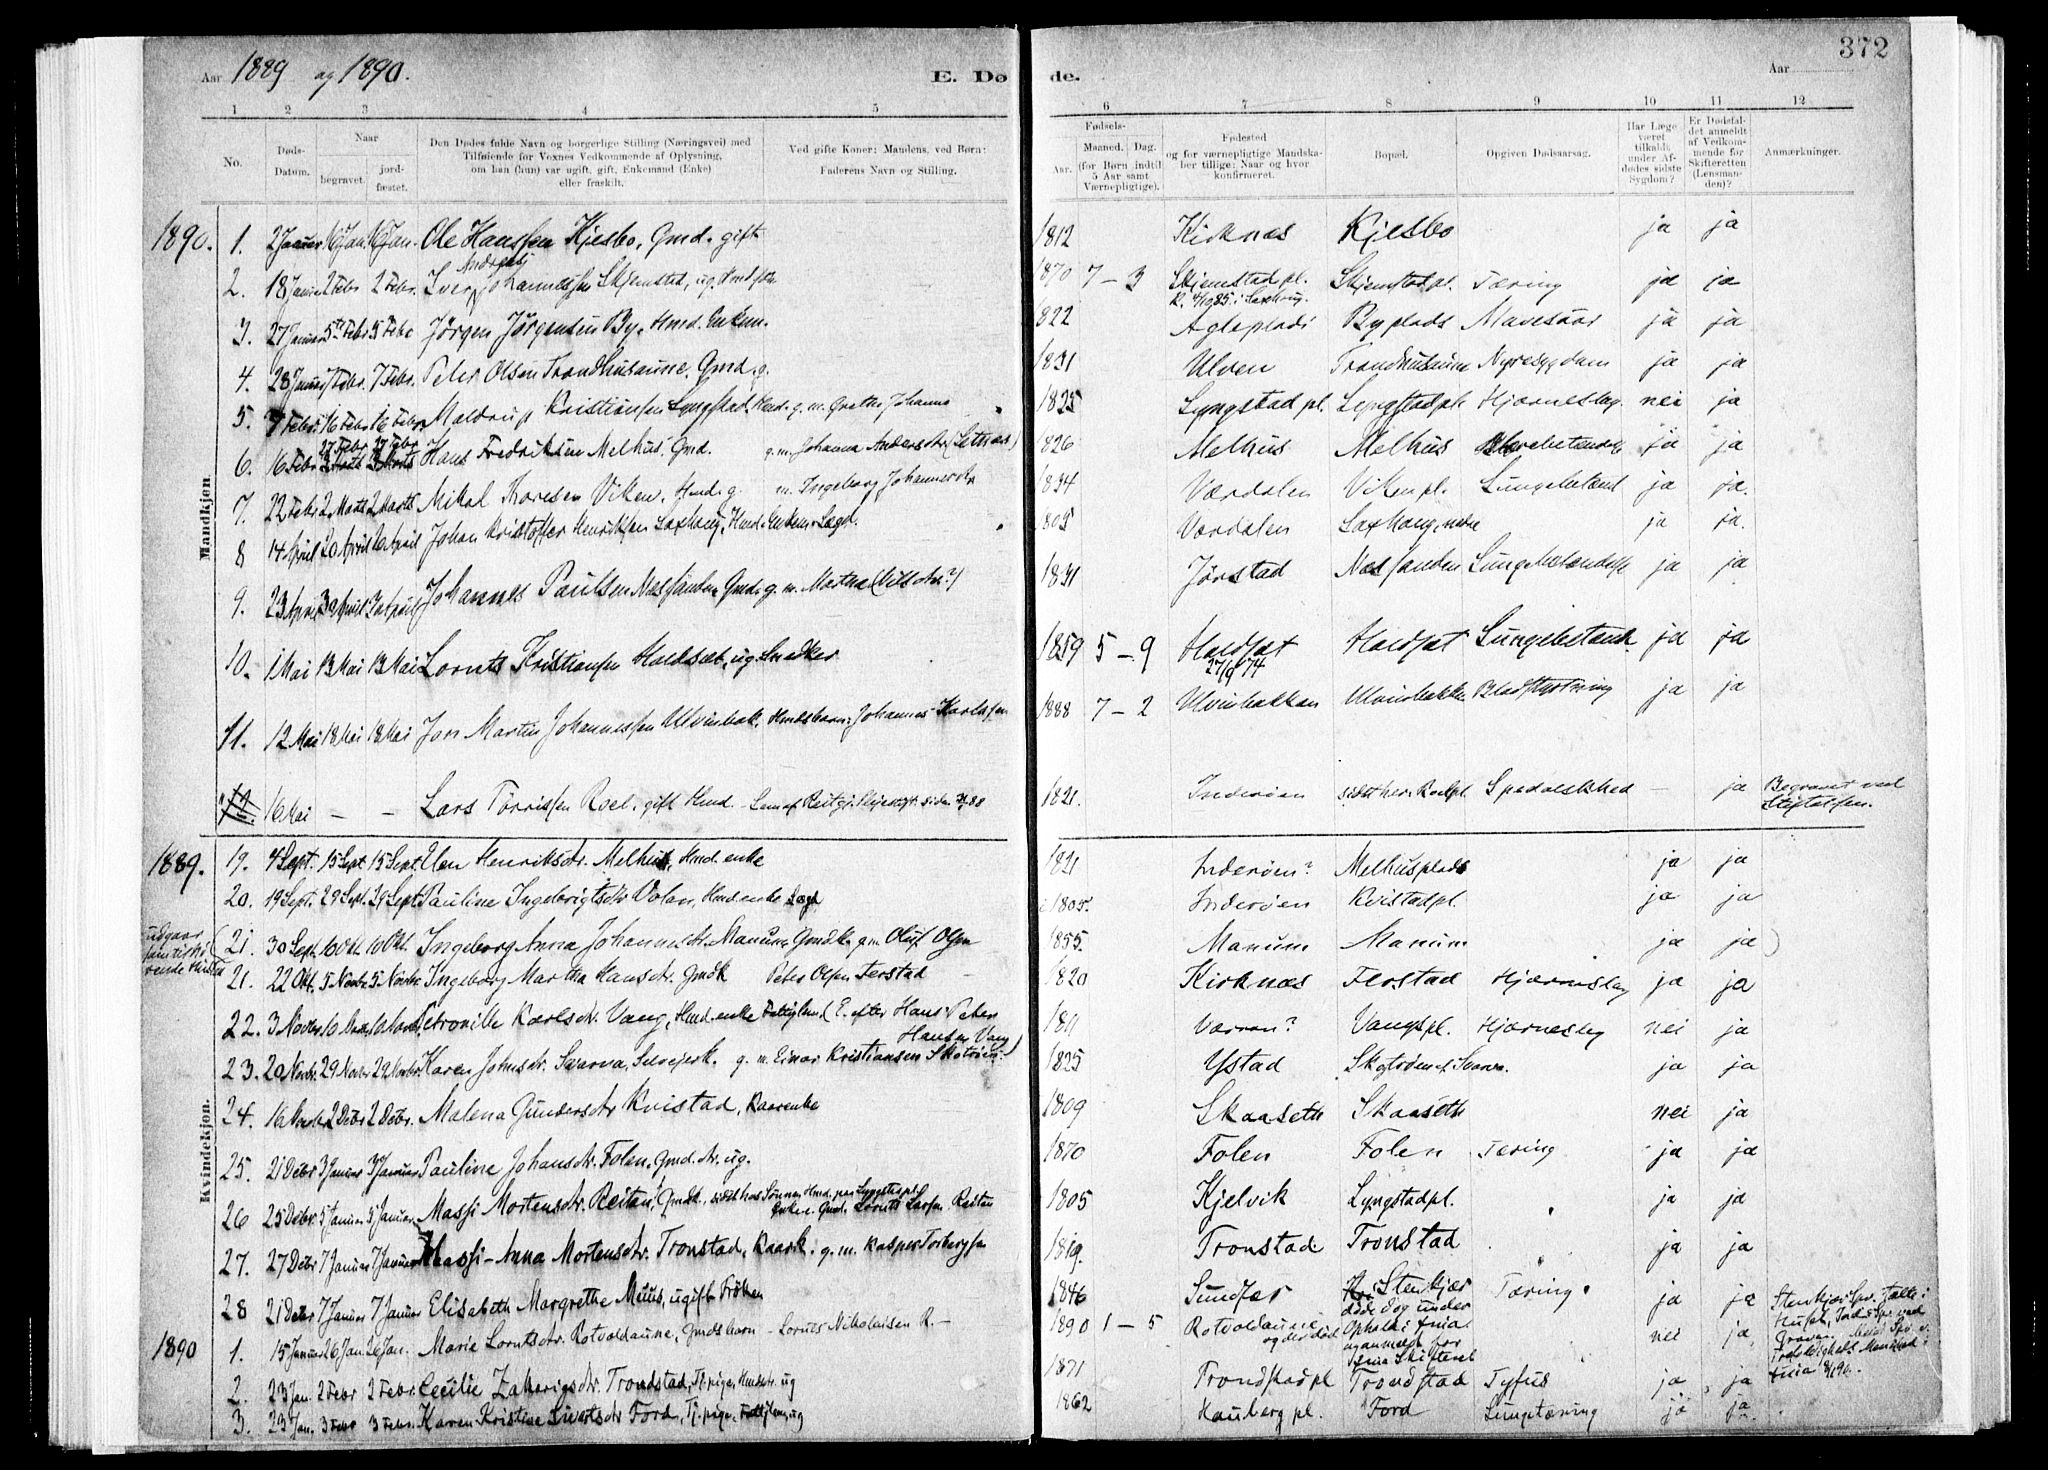 372
Aar 1889 og 1890. E. Døde. Aar
1 2 3 4 5 6 7 8 9 10 11 12
No. Døds-Datum. Naar begravet. jordfæstet. Den Dødes fulde Navn og borgerlige Stilling (Næringsvei) med Tilføiende for Voxnes Vedkommende af Oplysning, om han (hun) var ugift, gift, Enkemand (Enke) eller fraskilt. Ved gifte Koner: Mandens, ved Børn: Faderens Navn og Stilling. Fødsels- Aar. Maaned. Dag. (for Børn indtil 5 Aar samt Værnepligtige). Fødested og for værnepligtige Mandskaber tillige: Naar og hvor konfirmeret. Bopæl. Opgiven Dødsaarsag. Har Læge været tilkaldt under Afdødes sidste Sygdom? Er Dødsfaldet anmeldt af Vedkommende for Skifteretten (Lensmanden)? Anmærkninger.
Mandkjøn.
1890. 1. 2 Januar 16 Jan. 16 Jan. Ole Hanssen Kjesbo, Gmd. gift 1812 Kirknæs Kjesbo ja ja
2. 18 Januar 2 Febr 2 Febr. Iver Andreas Johannessen Skjemstad, ug. 1870 7 – 3 Skjemstad pl. Skjemstad pl. Tæring ja ja
3. 27 Januar 5 Febr 5 Febr Jørgen Jørgensen By, Hmd. Enkem. 1822 Agleplads Byplads Mavesaar ja ja
4. 28 Januar 7 Febr. 7 Febr. Peter Olsen Trondhusaune, Gmd. g. 1831 Ulven Trondhusaune Nyresygdom ja ja
5. 7 Febr. 16 Febr 16 Febr Kristiansen Lyngstad, Hmd. g. m. Grethe Johanna 1825 Lyngstad pl. Lyngstad pl. Hjerneslag. nei ja
6. 16 Febr 27 Febr 27 Febr Hans Fredriksen Melhus, Gmd. g. m. Johanna Andersdtr (Letnes) 1826 Melhus Melhus ja ja
7. 22 Febr 2 Marts 2 Marts Mikal Thoresen Viken, Hmd. g. m. Ingeborg Johannesdtr 1834 Værdalen Viken pl. Lungebetænd ja ja.
8 14 April 20 April Johan Kristoffer Henriksen Saxhaug, Hmd. Enkem. Lægd. 1805 Værdalen Saxhaug, nedre ja ja.
9. 23 April 30 April 30 April Johannes Paulsen Næssanden Gmd. g. m. Martha 1831 Jørstad Næssanden Lungebetændelse ja ja
10. 1 Mai 13 Mai 13 Mai Lornts Kristiansen Holdsæt, ug. Snedker 1859 5 – 9 Holdsæt Holdsæt Lungebetænd. ja ja
27/9 74
11. 12 Mai 18 Mai 18 Mai Jon Martin Johannessen Ulvinbak. Hmdsbarn: Johannes Karlsen 1888 7 – 2 Ulvinbakken Ulvinbakken Blodstyrtning ja ja
12. 16 Mai – – Lars Tørrissen Roel, gift Hmd. 1821. Inderøen Roelpl. Spedalskhed – ja Begravet ved Stiftelsen.
Kvindekjøn.
1889. 19. 4 Sept. 15 Sept 15 Sept. Elen Henriksdtr. Melhus, Hmd. enke 1821 Inderøen? Melhusplads ja ja
20. 19 Sept. 29 Sept. 29 Sept. Pauline Ingebrigtsdtr Volan, Hmd enke Lægd 1805. Inderøen Kvistadpl. ja ja
21. 30 Sept. 10 Okt. 10 Okt. Ingeborg Anna Johannesdtr. Manum Gmdk. g. m. Oluf Olsen 1855. Manum Manum ja ja)
21. 22 Okt. 5 Novbr 5 Novbr Ingeborg Martha Hansdtr. Gmdk Peter Olsen Ferstad 1820 Kirknæs Ferstad Hjerneslag ja ja
22. 3 Novbr 10 Novbr 10 Novbr. Petronille Karlsdtr. Vang, Hmd. enke Fattiglemd (E. efter Hans Peter Hansen Vang) 1811 Værran? Vangspl. Hjerneslag nei ja
23. 20 Novbr. 29 Novbr 29 Novbr. Karen Johnsdtr. Svarva, Selveierk. g. m. Einar Kristiansen Skotrøen. 1825 Ystad Skotrøen af Svarva. ja ja
24. 16 Novbr 2 Debr 2 Debr. Malena Gundersdtr Kvistad, Kaarenke 1809 Skaaseth Skaaseth nei ja
25. 21 Debr 3 Januar 3 Januar Pauline Johansdtr. Folen, Gmd. dtr. ug. 1870 Folen Folen Tæring ja ja
26 25 Debr. 5 Januar 5 Januar Massi Mortensdtr. Reitan, Gmdk. Lornts Larsen Reitan 1805 Kjelvik Lyngstadpl. ja ja
27. 27 Debr 7 Januar 7 Januar Massi-Anna Mortensdtr. Tronstad, Kaark. g. m. Kasper Torbergsen 1819. Tronstad Tronstad ja ja
28 21 Debr 7 Januar 7 Januar Elisabeth Margrethe Muus, ugift Frøken 1846 Sundfær Stenkjær Tæring. ja ja
1890 1. 15 Januar 26 Jan. 26 Jan. Marie Lorntsdtr. Rotvoldaune, Gmdsbarn – Lornts Nikolaisen R. – 1890 1 – 5 Rotvoldaune nei ja
2. 23 Jan. 2 Febr 2 Febr. Cecilie Zakariasdtr. Trondstad, Tj. pige, ug 1871 Trondstad pl Trondstad Tyfus ja ja
3. 23 Jan. 3 Febr 3 Febr. Karen Kristine Sivertsdtr Ford, Tj. pige, ug 1862 Hauberg pl. Ford Lungetæring ja ja